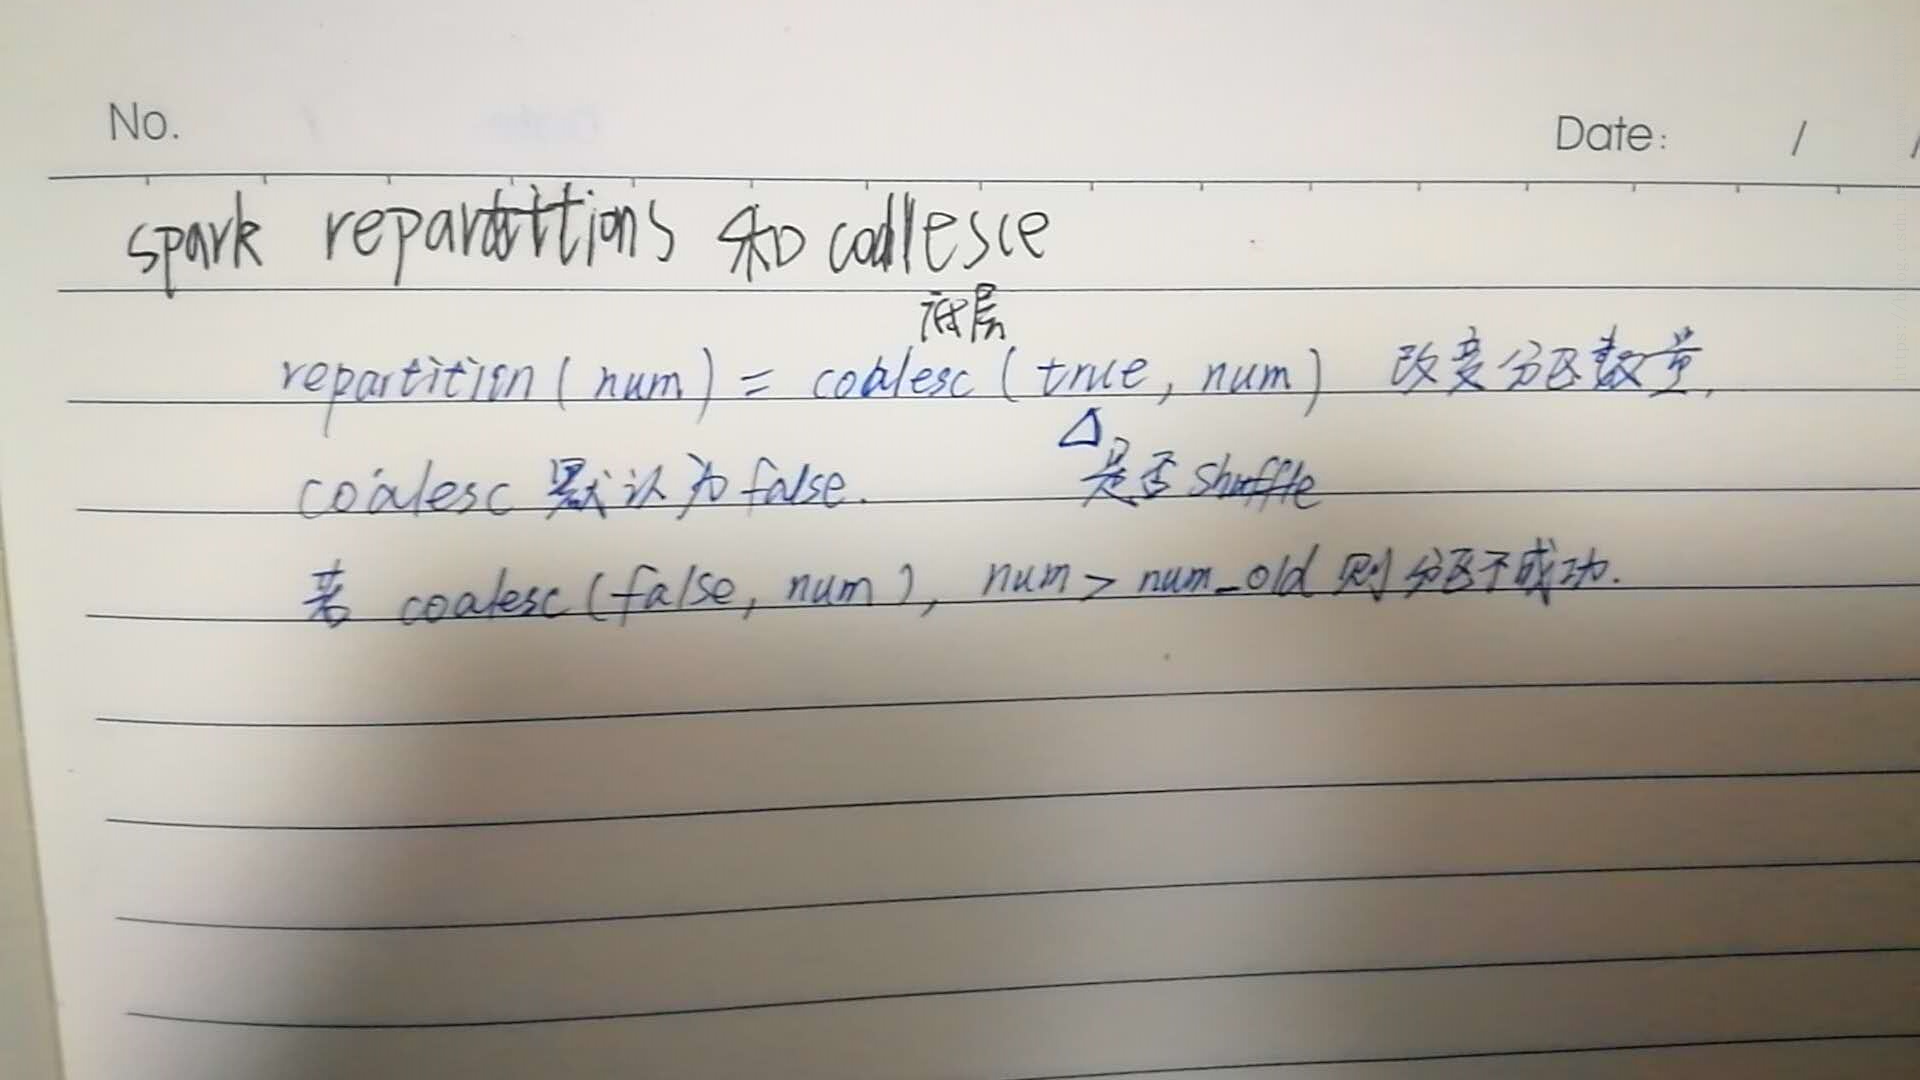 No.
Date: / /
spark repartitions 和 coalesce
底层
repartition(num) = coalesc(true, num) 改变分区数量,
Δ
coalesc 默认为 false. 是否 shuffle
若 coalesc(false, num), num > num_old 则分区不成功.